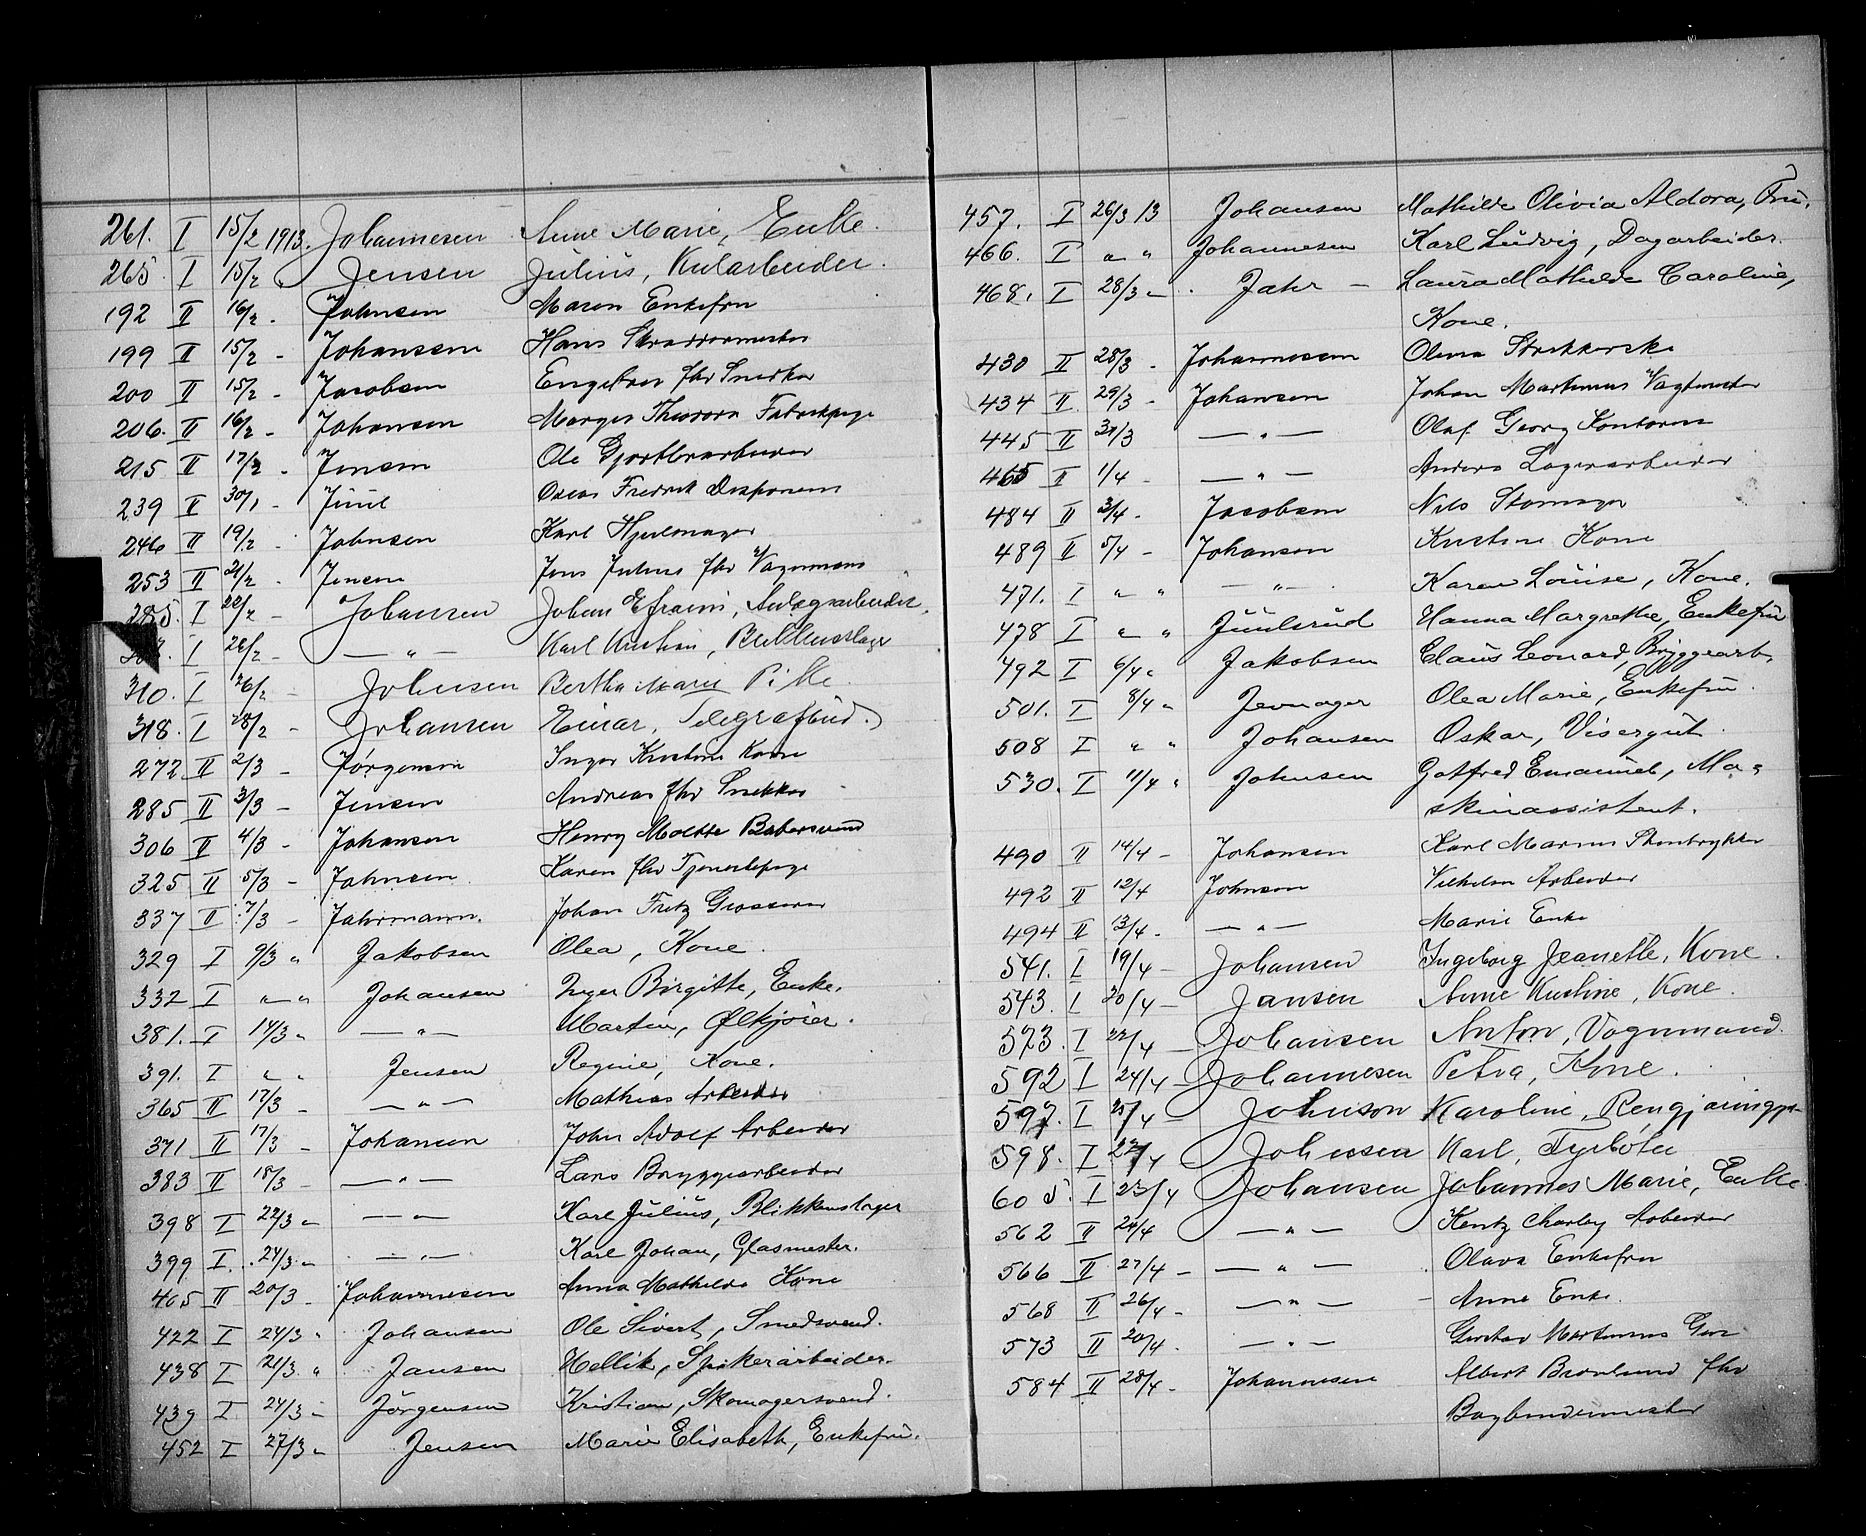 261. I 15/2 1913. Johannesen Anne Marie, Enke.
265. I 15/2 " Jensen Julius, Kularbeider.
192 II 16/2 - Johnsen Maren Enkefru
199 II 15/2 - Johansen Hans Skræddermester
200 II 15/2 - Jacobsen Engebret fhv Snedker
206. II 16/2 - Johansen Theodora Fabrikpige
215 II 17/2 - Jensen Ole
239 II 30/1 - Juul Oscar Fredrik Disponent
246 II 19/2 - Johnsen Karl Hjulmager
253 II 21/2 - Jensen Jens Julius fhv Vognmand
285. I 22/2 - Johansen Johan Efraim, Anlægsarbeider.
I 26/2 - — " — Karl Kristian, Blikkenslager
310. I 26/2 - Johnsen Bertha Marie Pike.
318. I 28/2 - Johansen Einar, Telegrafbud.
272 II 2/3 - Jørgensen Inger Kristine Kone
285 II 3/3 - Jensen Andreas fhv Snekker
306 II 4/3 - Johansen Henry Moltke Bakersvend
325 II 5/3 - Johnsen Karen fhv Tjenestepige
337 II 7/3 - Jahrmann. Johan Fritz Grosserer
329 I 9/3 " Jakobsen Olea, Kone.
332 I " " Johansen Inger Birgitte, Enke.
381. I 14/3 " — " — Martin, Ølkjører.
391. I " " Jensen Regine, Kone.
365 II 17/3 - — " — Mathias Arbeider
371 II 17/3 - Johansen John Adolf Arbeider
383 II 18/3 - — " — Lars Bryggearbeider
398 I 22/3 " — " — Karl Julius, Blikkenslager
399 I. 24/3 " — " — Karl Johan, Glasmester.
405 II 20/3 - Johannesen Anna Mathilde Kone
422 I 24/3 " Johansen Ole Sivert, Smedsvend.
438 I 21/3 " Jansen Hellik, Spikerarbeider.
439 I 24/3 " Jørgensen Kristian, Skomagersvend.
452 I 27/3 " Jensen Marie Elisabeth, Enkefru.
457. I 26/3 13 Johansen Mathilde Olivia Aldora, Fru.
466. I " " Johannesen Karl Ludvig, Dagarbeider.
468. I 28/3 " Jahr — Laura Mathilde Caroline,
Kone.
430 II 28/3 - Johannesen Olena Strikkerske
434 II 29/3 - Johansen Johan Martinius Vagtmester
445 II 31/3 — " — Olaf Georg Kontorist
465 II 1/4 - — " — Anders Lagerarbeider
484 II 3/4 - Jacobsen Nils Skomager
489 II 5/4 - Johansen Kristine Kone
471. I " " — " — Karen Louise, Kone.
478 I " " Juulsrud Hanna Margrethe, Enkefru
492 I 6/4 " Jakobsen Claus Leonard, Bryggearb.
501. I 8/4 " Jevnager Olea Marie, Enkefru.
508 I " " Johansen Oskar, Visergut.
530. I 11/4 " Johnsen Gotfred Emanuel, Ma-
skinassistent.
490 II 14/4 - Johansen Karl Marius Stentrykker
492 II 12/4 Johnson Vilhelm Arbeider
494 II 13/4 - — " — Marie Enke
541. I 19/4 - Johansen Ingeborg Jeanette, Kone.
543. I 20/4 - Jansen Anne Kristine, Kone.
573. I 22/4 - Johansen Anton, Vognmand.
592 I 24/4 - Johannesen Petra, Kone.
597. I 25/4 - Johnson Karoline, Rengjøringsp-
598. I 22/4 Johnsen Karl, Fyrbøter
605. I 23/4 Johansen Johannes Marie, Enke.
562 II 24/4 — " — Charley Arbeider
566 II 27/4 - — " — Olava Enkefru
568 II 26/4 - — " — Anne Enke.
573 II 20/4 - — " — Gustav Martinius
584 II 28/4 - Johannesen Albert fhv
Bogbindermester